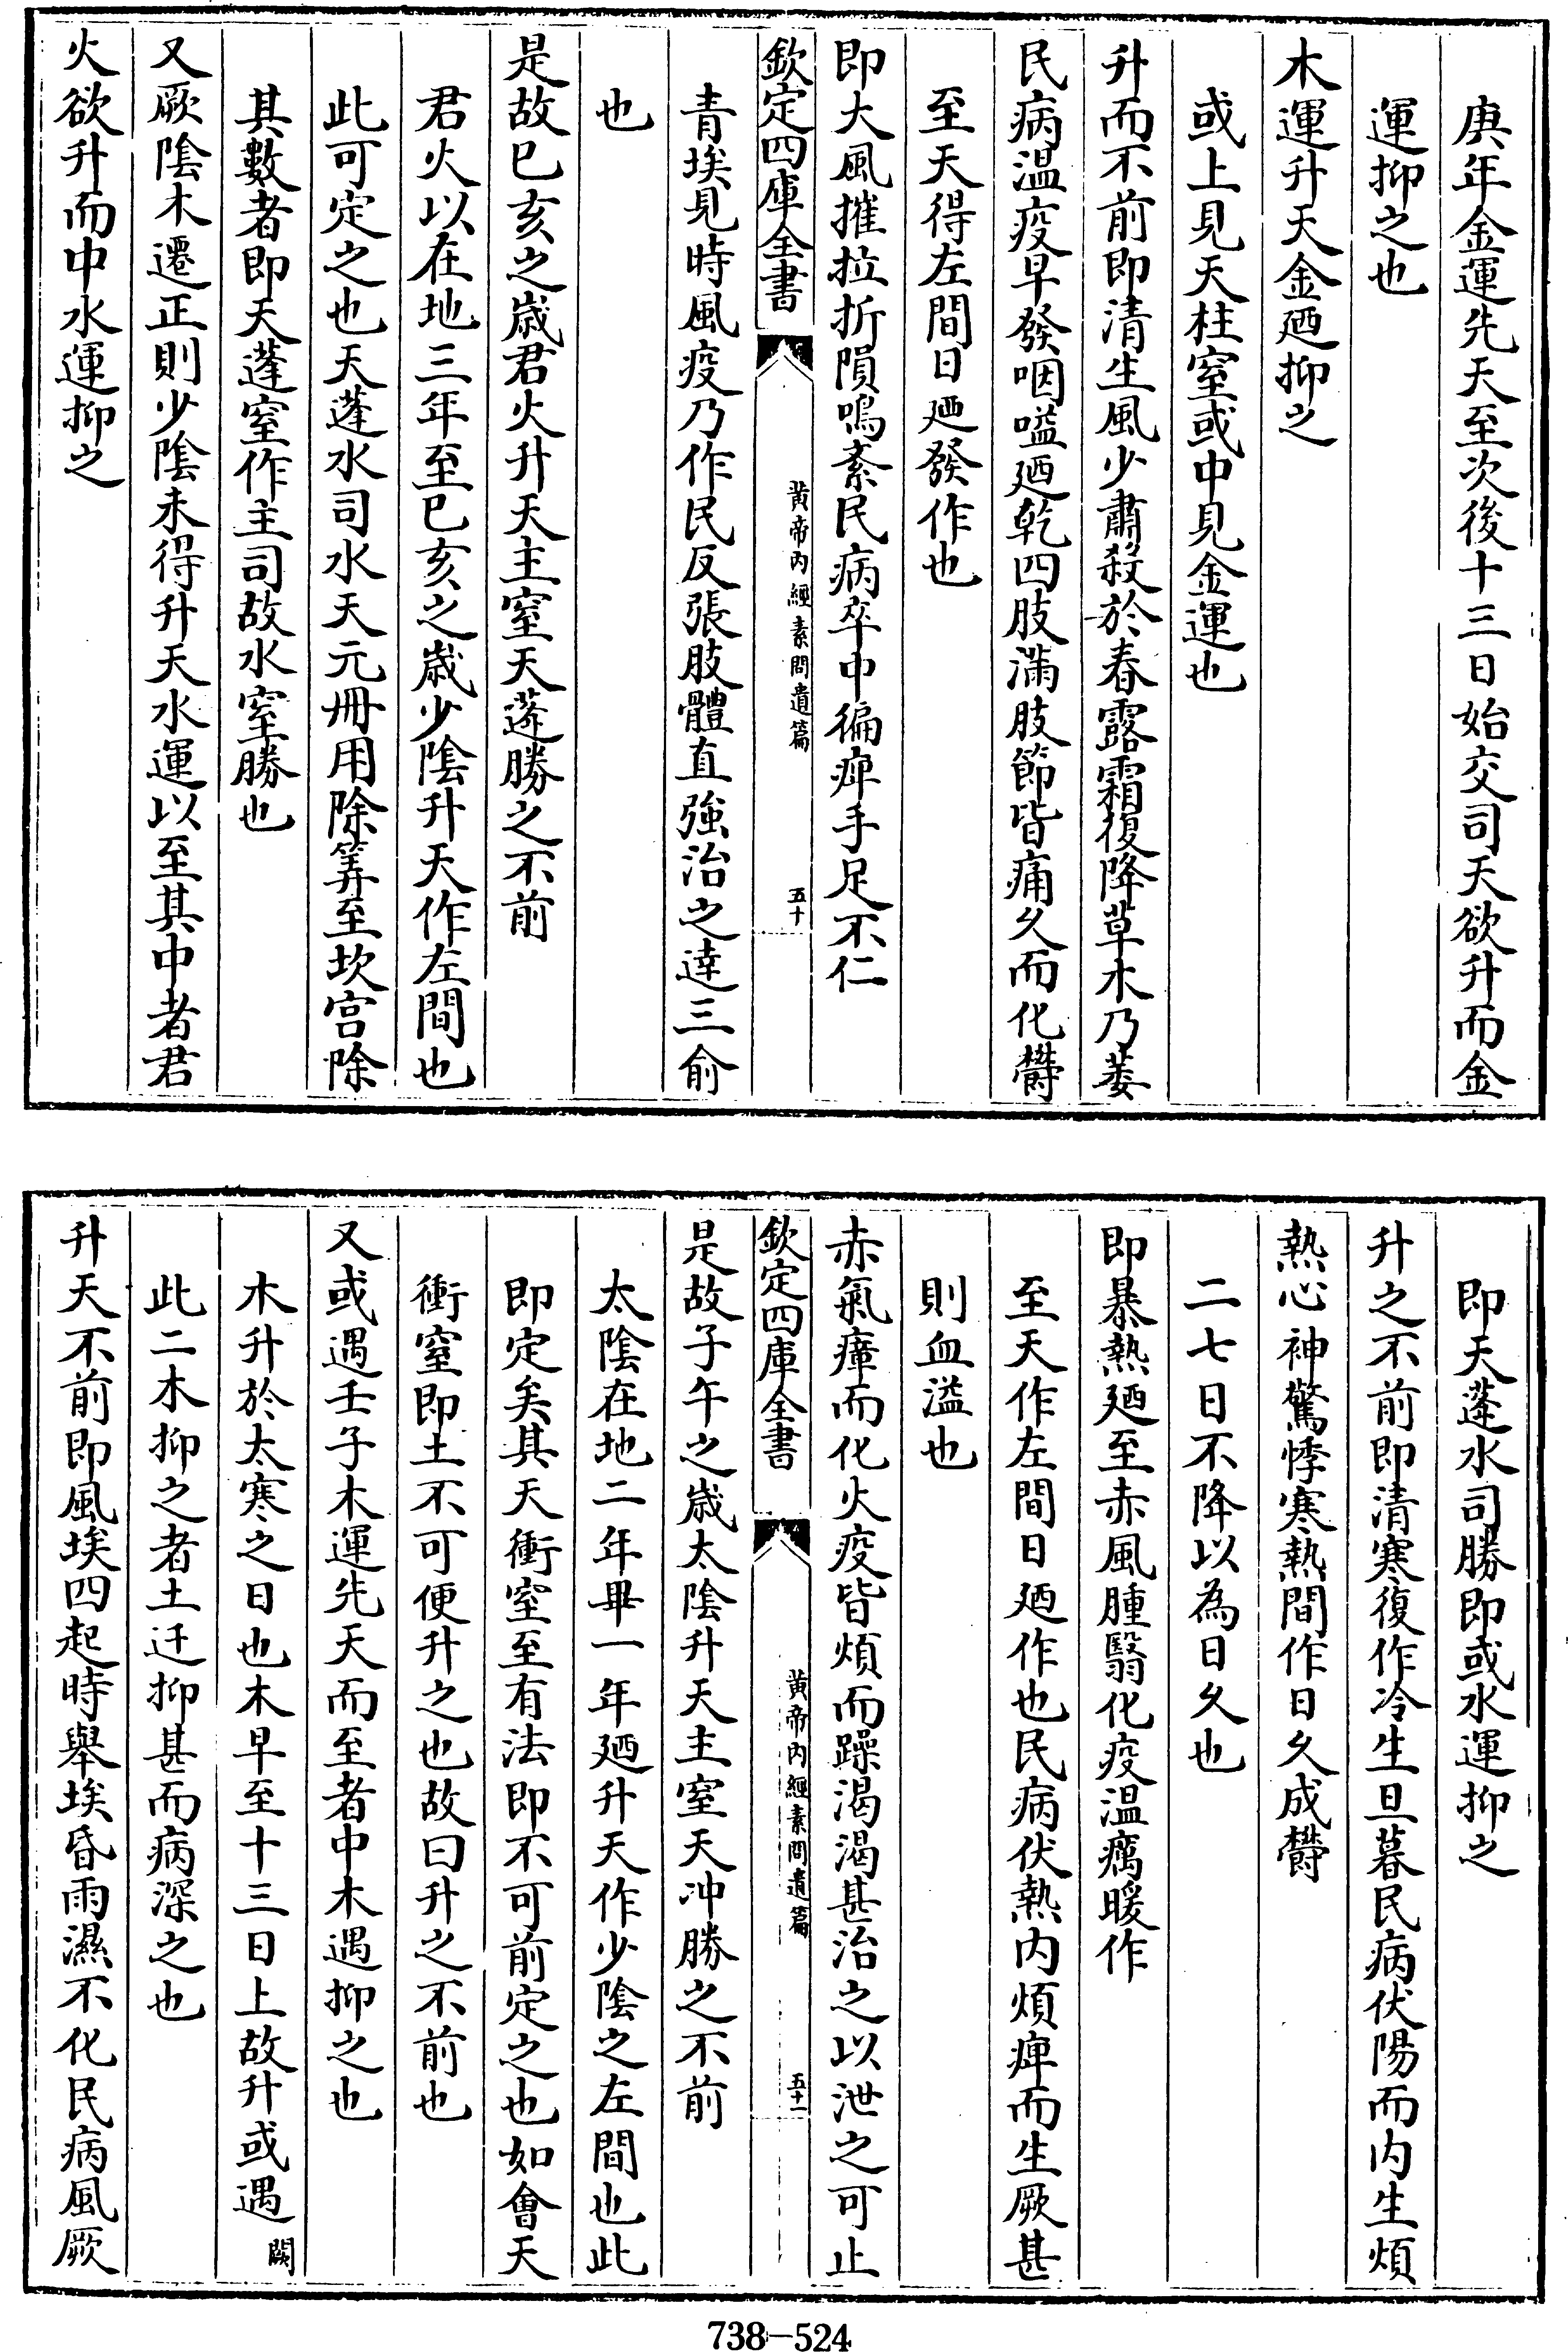 庚年金運先天至次後十三日始交司天欲升而金
運抑之也
木運升天金廼抑之
或上見天柱窒或中見金運也
升而不前即清生風少肅殺於春露霜復降草木乃萎
民病温疫早發咽嗌廼乾四肢滿肢節皆痛久而化欝
至天得左間日廼發作也
即大風摧拉折隕鳴紊民病卒中徧痺手足不仁
欽定四庫全書
黄帝内經素問遺篇
五十
青埃見時風疫乃作民反張肢體直強治之達三俞
也
是故巳亥之嵗君火升天主窒天蓬勝之不前
君火以在地三年至巳亥之嵗少陰升天作左間也
此可定之也天蓬水司水天元冊用除筭至坎宫除
其數者即天蓬窒作主司故水窒勝也
又厥陰木遷正則少陰未得升天水運以至其中者君
火欲升而中水運抑之
即天蓬水司勝即或水運抑之
升之不前即清寒復作冷生旦暮民病伏陽而内生煩
熱心神驚悸寒熱間作日久成欝
二七日不降以為日久也
即暴熱廼至赤風腫翳化疫温癘暖作
至天作左間日廼作也民病伏熱内煩痺而生厥甚
則血溢也
赤氣瘴而化火疫皆煩而躁渴渴甚治之以泄之可止
欽定四庫全書
黄帝内經素問遺篇
五十一
是故子午之嵗太陰升天主窒天冲勝之不前
太陰在地二年畢一年廼升天作少陰之左間也此
即定矣其天衝窒至有法即不可前定之也如會天
衝窒即土不可便升之也故曰升之不前也
又或遇壬子木運先天而至者中木遇抑之也
木升於太寒之日也木早至十三日上故升或遇闕
此二木抑之者土迁抑甚而病深之也
升天不前即風埃四起時舉埃昏雨濕不化民病風厥
738-524